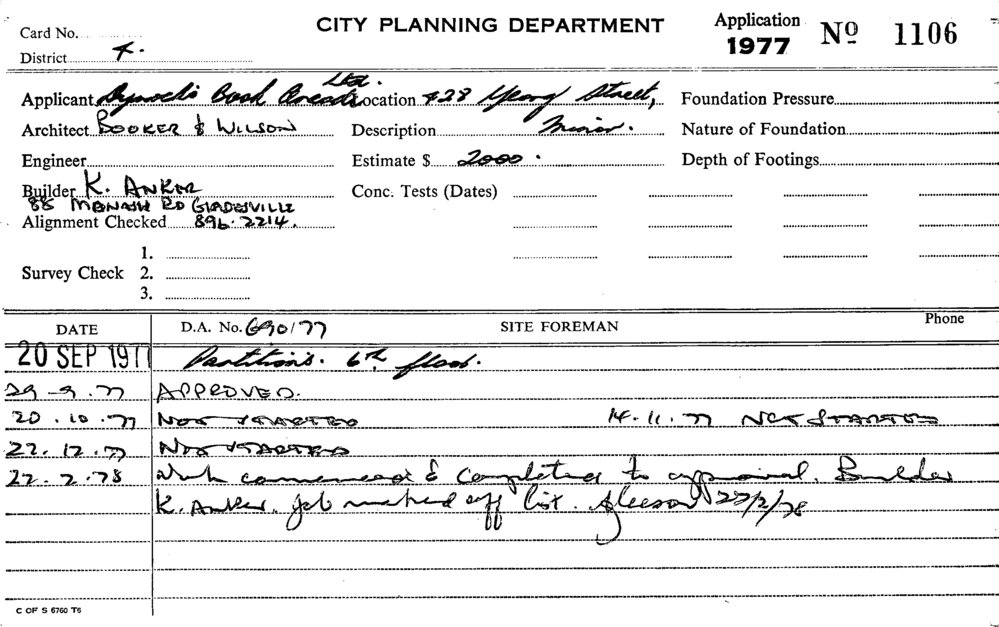 CITY PLANNING DEPARTMENT
Application
1977 No 1106
Card No.
District 4.
Applicant Dymock's Book Arcade Ltd. Location 428 George Street,
Foundation Pressure
Architect BOOKER & WILSON Description Minor. Nature of Foundation
Engineer Estimate $ 2000. Depth of Footings
Builder K. ANKER Conc. Tests (Dates)
88 MONASH RD GLADESVILLE
Alignment Checked 896.2214.
1.
Survey Check 2.
3.
DATE D.A. No. 690/77 SITE FOREMAN Phone
20 SEP 1977 Partitions. 6th floor.
29-9.77 APPROVED.
20.10.77 NOT STARTED 14.11.77 NOT STARTED
22.12.77 NOT STARTED
22.2.78 Work commenced & completed to approval. Builder
K. Anker. Job marked off list. Gleeson 22/2/78
C OF S 6760 T6